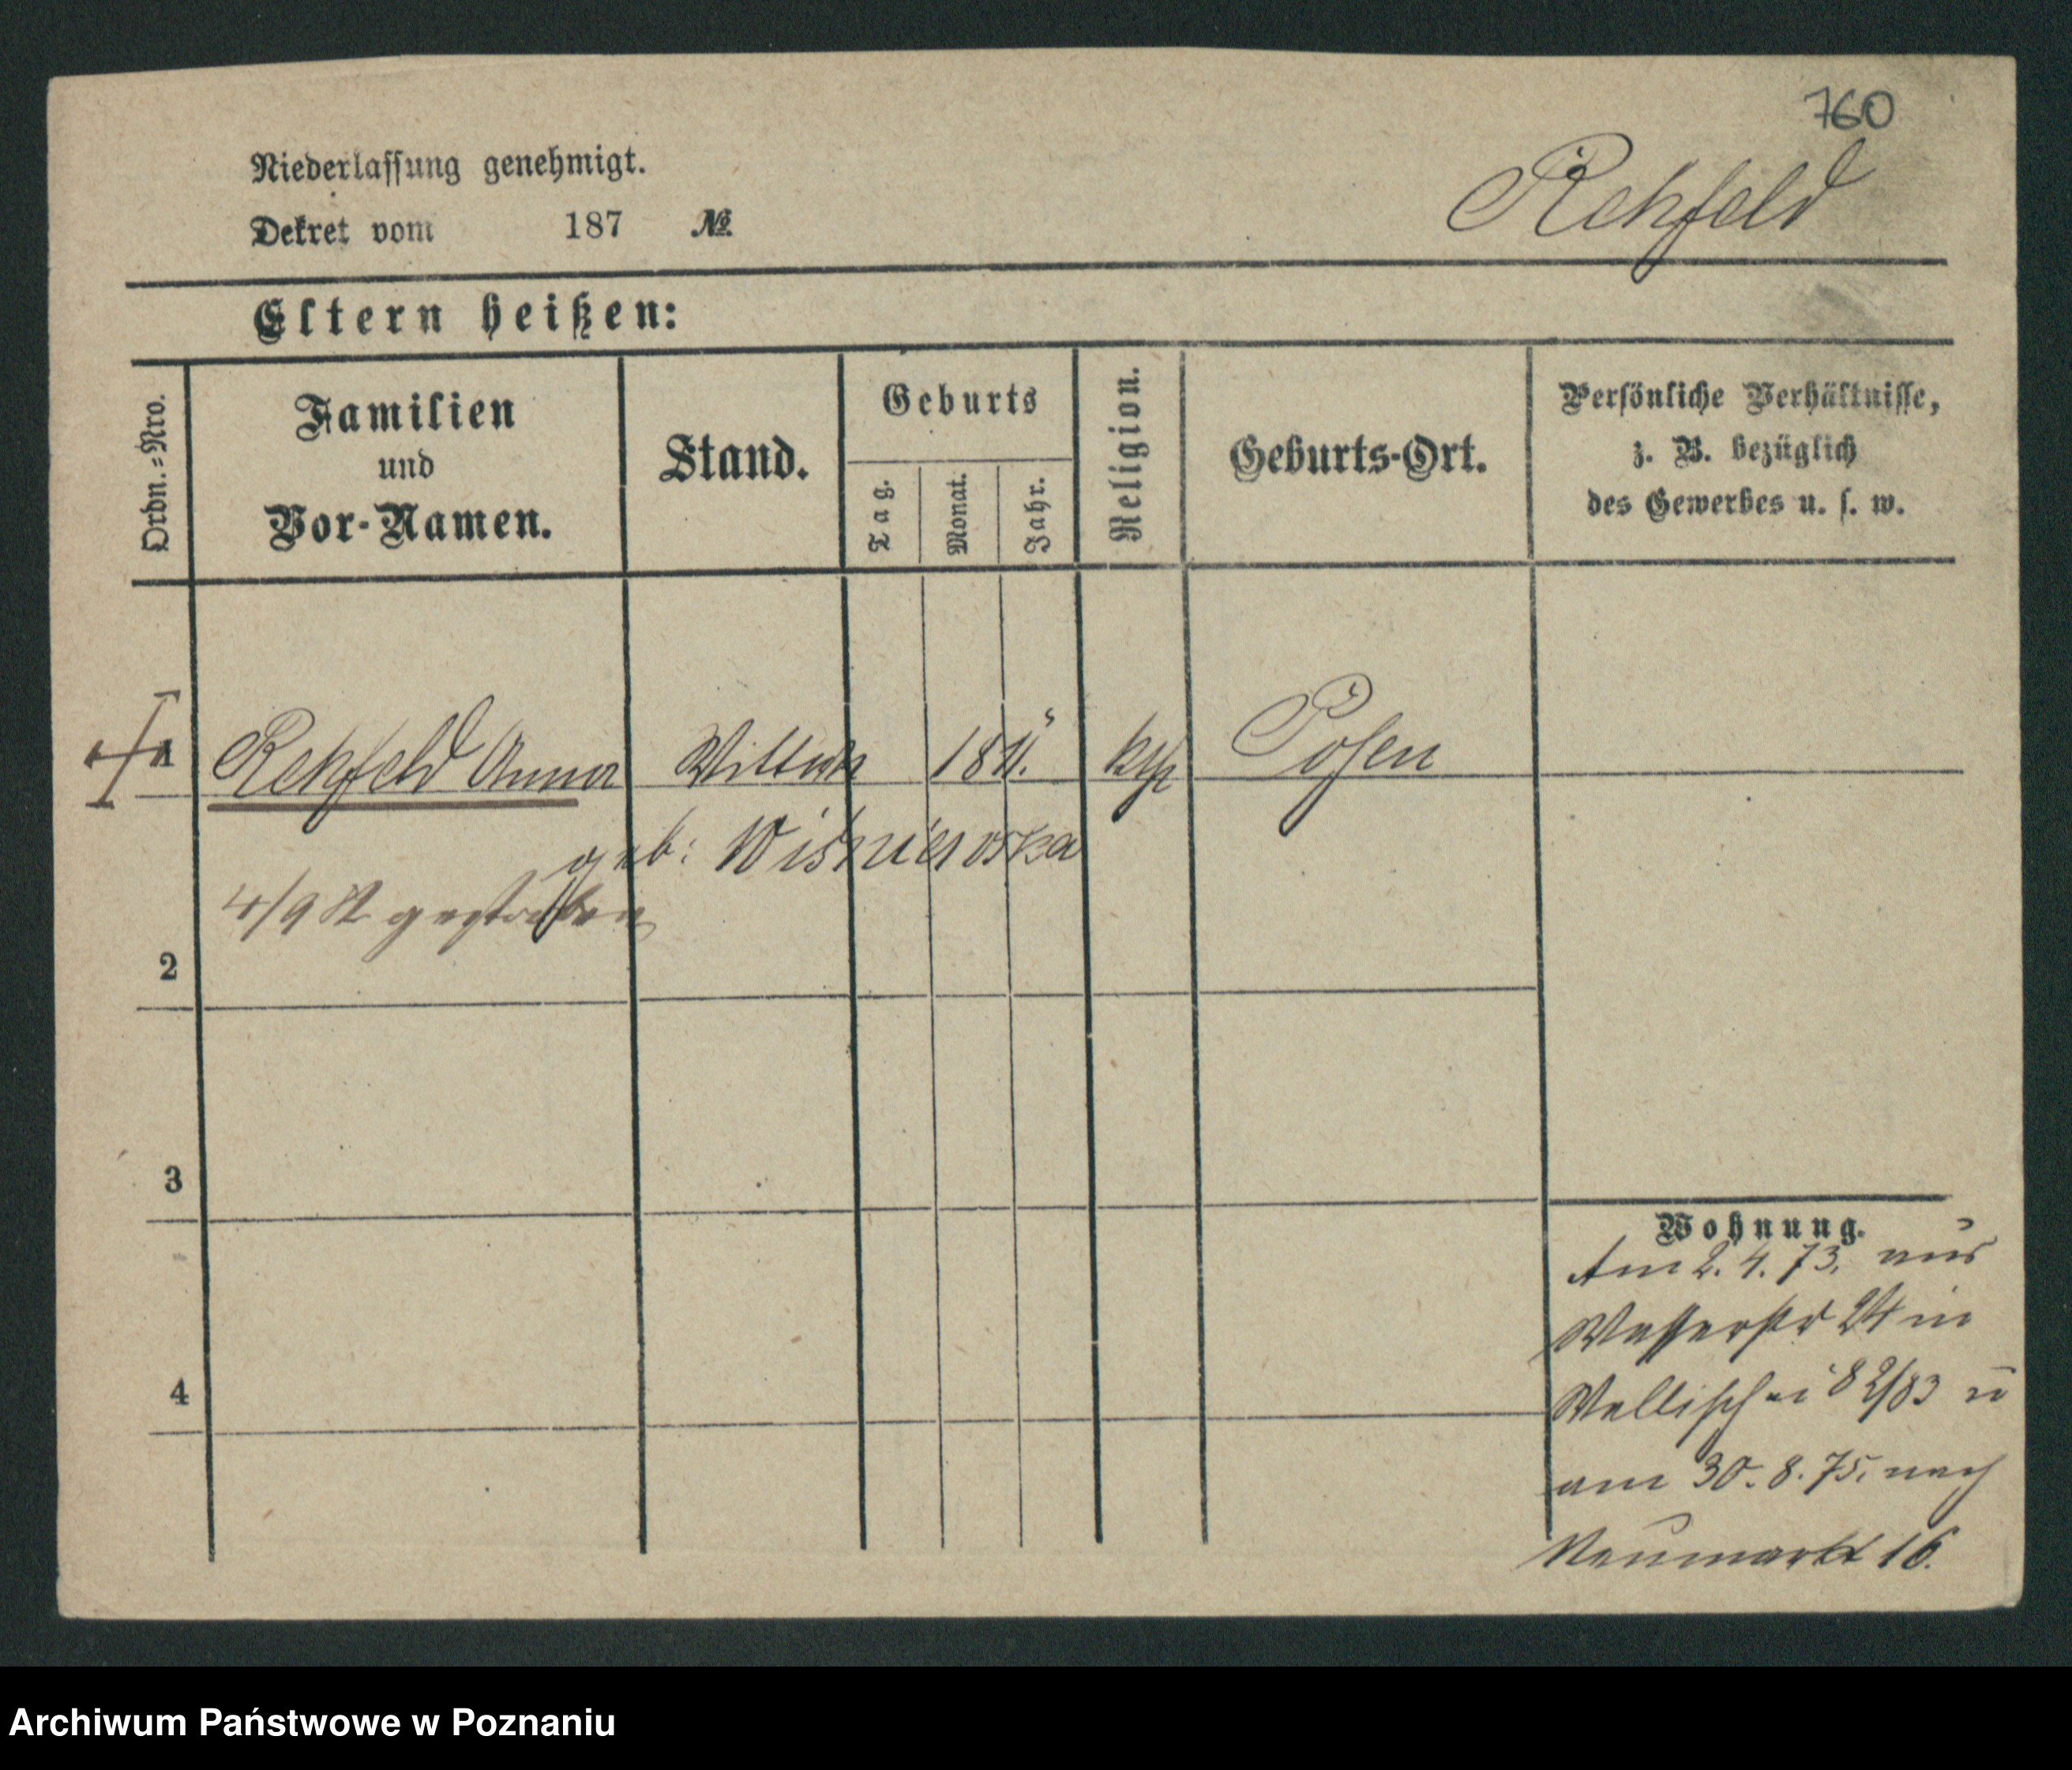 760
Niederlassung genehmigt.
Rehfeld
Dekret vom 187 №
Eltern heißen:
Ordn.=Nro.
Familien
und
Vor-Namen.
Stand.
Geburts
Tag.
Monat.
Jahr.
Religion.
Geburts-Ort.
Persönliche Verhältnisse,
z. B. bezüglich
des Gewerbes u. s. w.
1 Rehfeld Anna Wittwe 1811. kth Posen
geb: Wisniewska
4/9 82 gestorben
2
3
4
Wohnung.
Am 2. 4. 73. aus
Wasserstr 24 in
Wallischei 82/83 u
am 30. 8. 75. nach
Neumarkt 16.
Archiwum Państwowe w Poznaniu